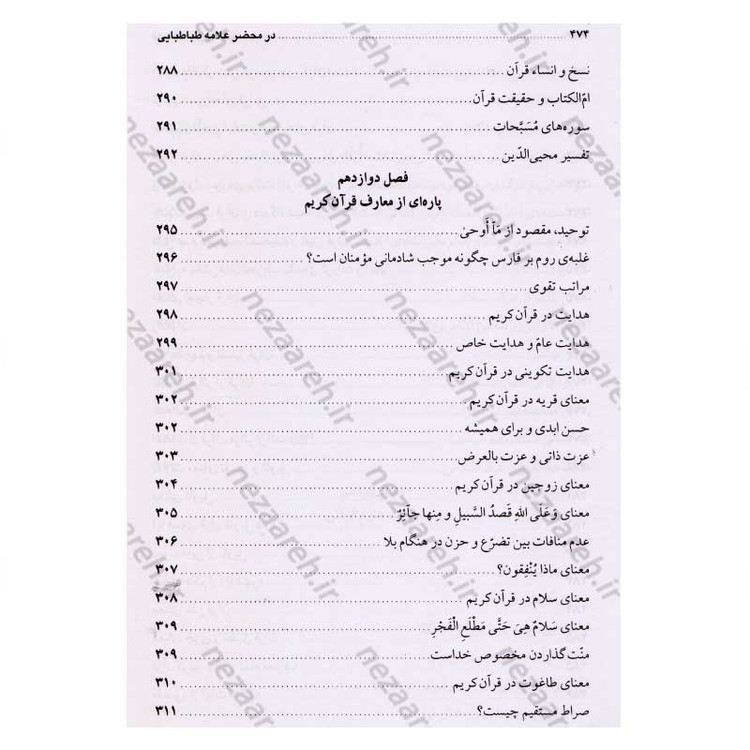 ۴۷۴ ........ در محضر علامه طباطبایی
نسخ و انساء قرآن ........ ۲۸۸
امّ‌الکتاب و حقیقت قرآن ........ ۲۹۰
سوره‌های مُسَبَّحات ........ ۲۹۱
تفسیر محیی‌الدّین ........ ۲۹۲
فصل دوازدهم
پاره‌ای از معارف قرآن کریم
توحید، مقصود از مَآ أَوحیٰ ........ ۲۹۵
غلبه‌ی روم بر فارس چگونه موجب شادمانی مؤمنان است؟ ........ ۲۹۶
مراتب تقوی ........ ۲۹۷
هدایت در قرآن کریم ........ ۲۹۸
هدایت عامّ و هدایت خاص ........ ۲۹۹
هدایت تکوینی در قرآن کریم ........ ۳۰۱
معنای قریه در قرآن کریم ........ ۳۰۲
حسن ابدی و برای همیشه ........ ۳۰۲
عزت ذاتی و عزت بالعرض ........ ۳۰۳
معنای زوجین در قرآن کریم ........ ۳۰۴
معنای وَعَلَی اللهِ قَصدُ السَّبیلِ و مِنها جآئِرٌ ........ ۳۰۵
عدم منافات بین تضرّع و حزن در هنگام بلا ........ ۳۰۶
معنای ماذا یُنْفِقون؟ ........ ۳۰۷
معنای سلام در قرآن کریم ........ ۳۰۸
معنای سَلامٌ هِیَ حَتَّی مَطْلَعِ الْفَجْرِ ........ ۳۰۹
منّت گذاردن مخصوص خداست ........ ۳۰۹
معنای طاغوت در قرآن کریم ........ ۳۱۰
صراط مستقیم چیست؟ ........ ۳۱۱
nezaareh.ir